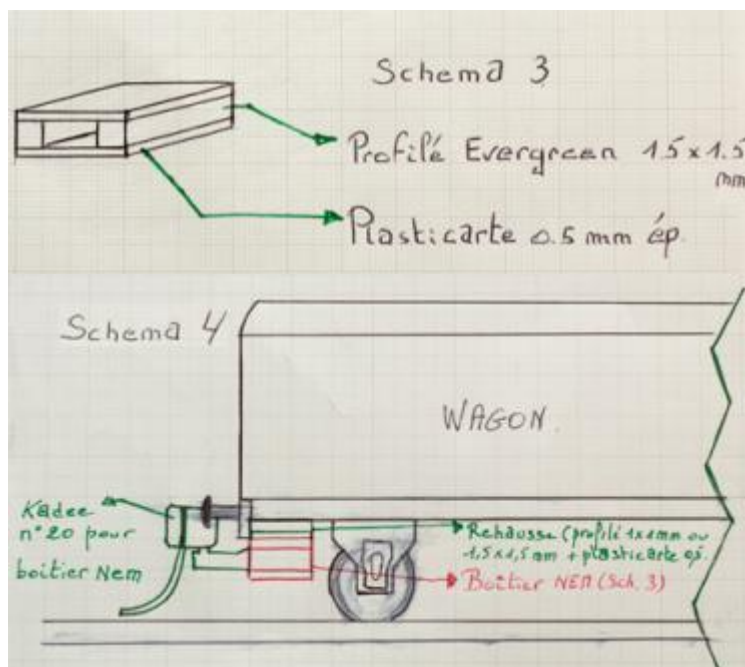 Schema 3
Profilé Evergreen 1.5 x 1.5
mm
Plasticarte 0.5 mm ép.
Schema 4
WAGON.
Kadee
n° 20 pour
boitier Nem
Rehausse (profilé 1x1mm ou
1,5x1,5 mm + plasticarte 0,5.
Boitier NEM (Sch. 3)